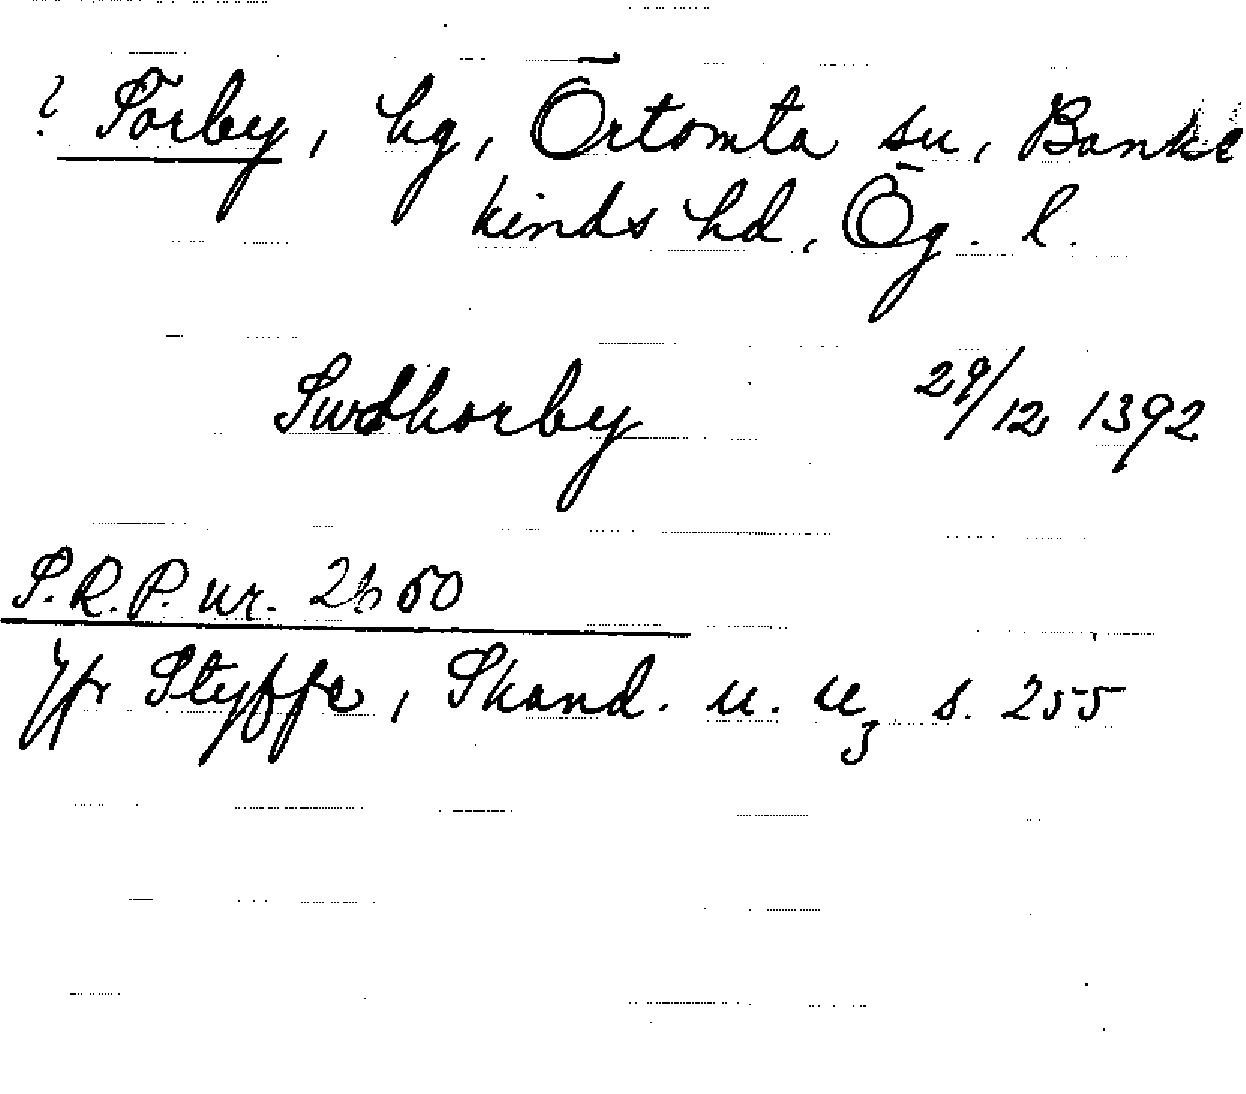 ? Torby, hg, Örtomta sn, Banke
kinds hd, Ög. l.
Swdhorby 29/12 1392
S.R.P. nr. 2650
Jfr Styffe, Skand. u. u3 s. 255